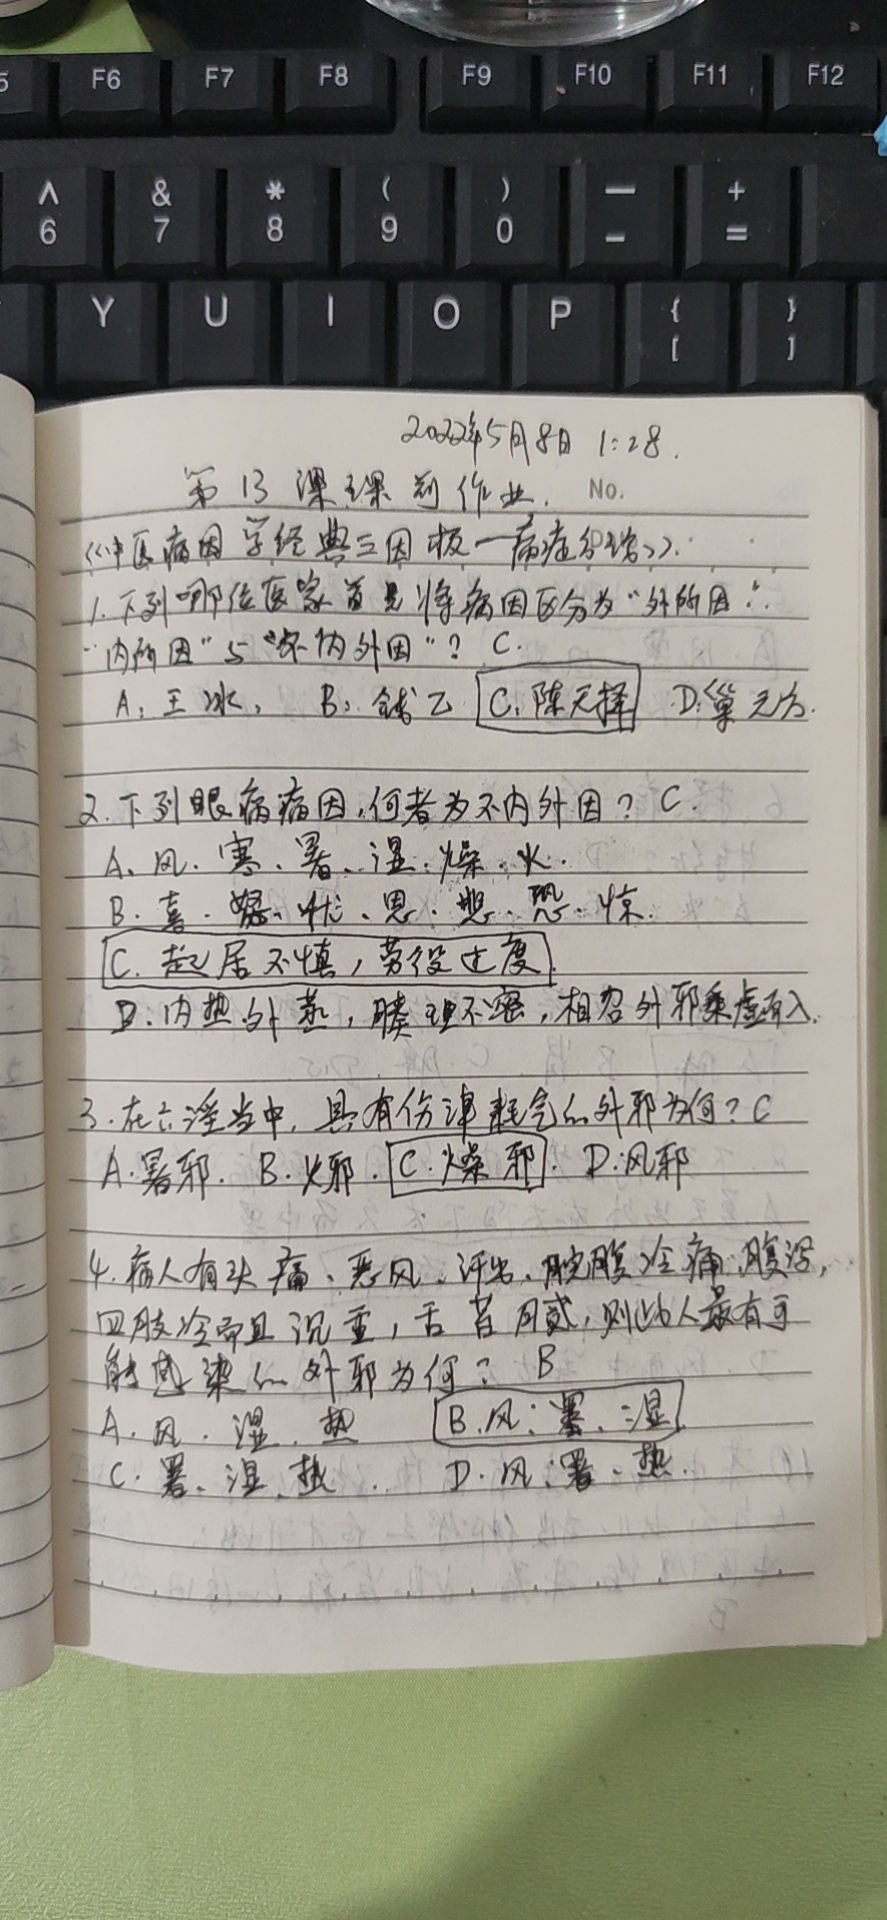 5 F6 F7 F8 F9 F10 F11 F12
^ & * ( ) — +
6 7 8 9 0 - =
Y U I O P { }
[ ]
2022年5月8日 1:28.
第13课课前作业. No.
《中医病因学经典三因极一病症分论》.
1.下列哪位医家首是将病因区分为“外所因”.
“内所因”与“不内外因”? C.
A、王冰, B、钱乙 C、陈无择 D、巢元方.
2.下列眼病病因,何者为不内外因? C.
A、风、寒、暑、湿、燥、火.
B.喜、怒、忧、思、悲、恐、惊.
C. 起居不慎,劳役过度.
D.内热外蒸,腠理不密,相召外邪乘虚而入.
3.在六淫当中,具有伤津耗气的外邪为何? C
A.暑邪. B.火邪. C.燥邪. D.风邪
4.病人有头痛、恶风、汗出、脘腹冷痛、腹泻,
四肢冷而且沉重,舌苔月贰,则此人最有可
能感染的外邪为何? B
A.风.湿.热 B.风、暑、湿
C.暑、湿、热 D.风、暑、热.